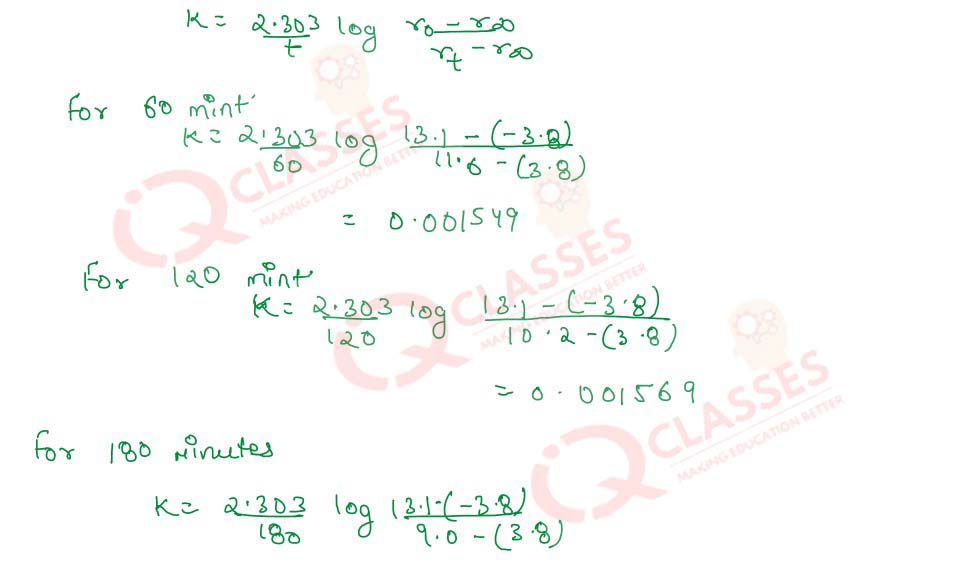 K = 2.303/t log r0 - r∞ / rt - r∞
for 60 mint
K = 2.303/60 log 13.1 - (-3.8) / 11.6 - (3.8)
= 0.001549
For 120 mint
K = 2.303/120 log 13.1 - (-3.8) / 10.2 - (3.8)
= 0.001569
for 180 minutes
K = 2.303/180 log 13.1 - (-3.8) / 9.0 - (3.8)
IQ CLASSES
MAKING EDUCATION BETTER
IQ CLASSES
MAKING EDUCATION BETTER
IQ CLASSES
MAKING EDUCATION BETTER